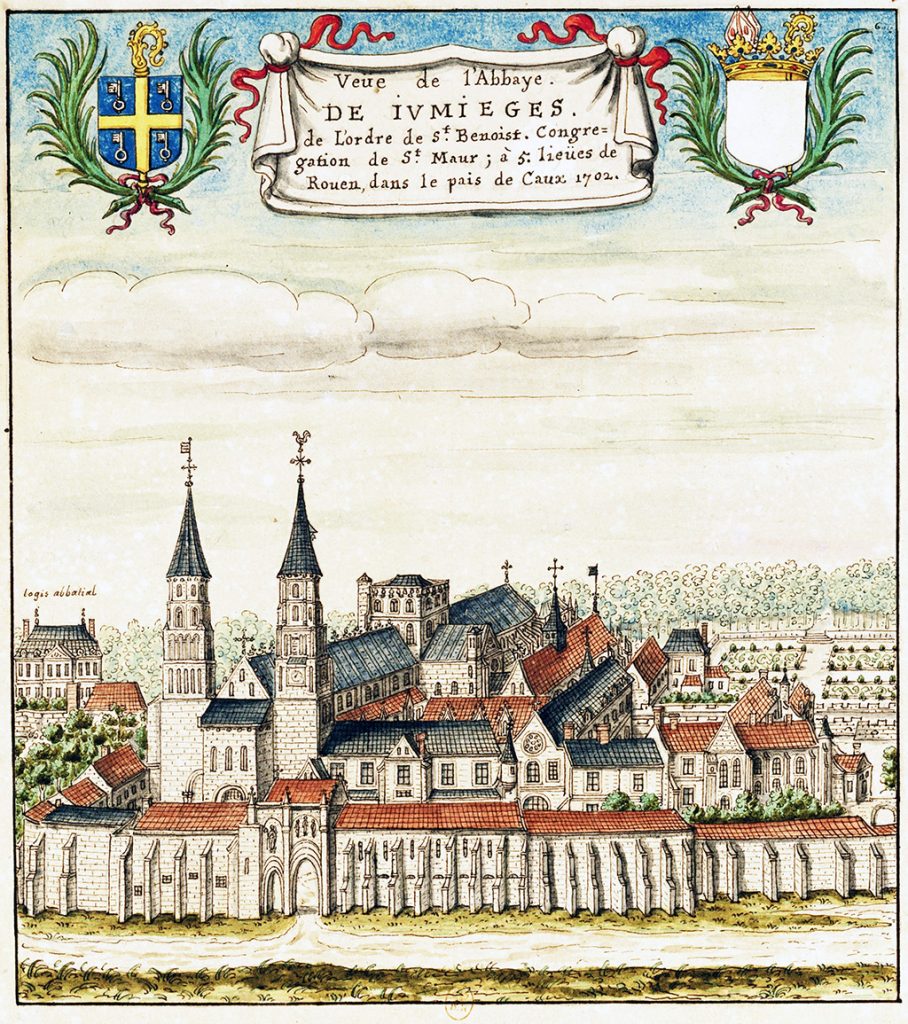 Veuë de l'Abbaye.
DE IVMIEGES.
de L'ordre de S.t Benoist. Congre=
gation de S.t Maur; à 5. lieües de
Rouen, dans le païs de Caux 1702.
logis abbatial